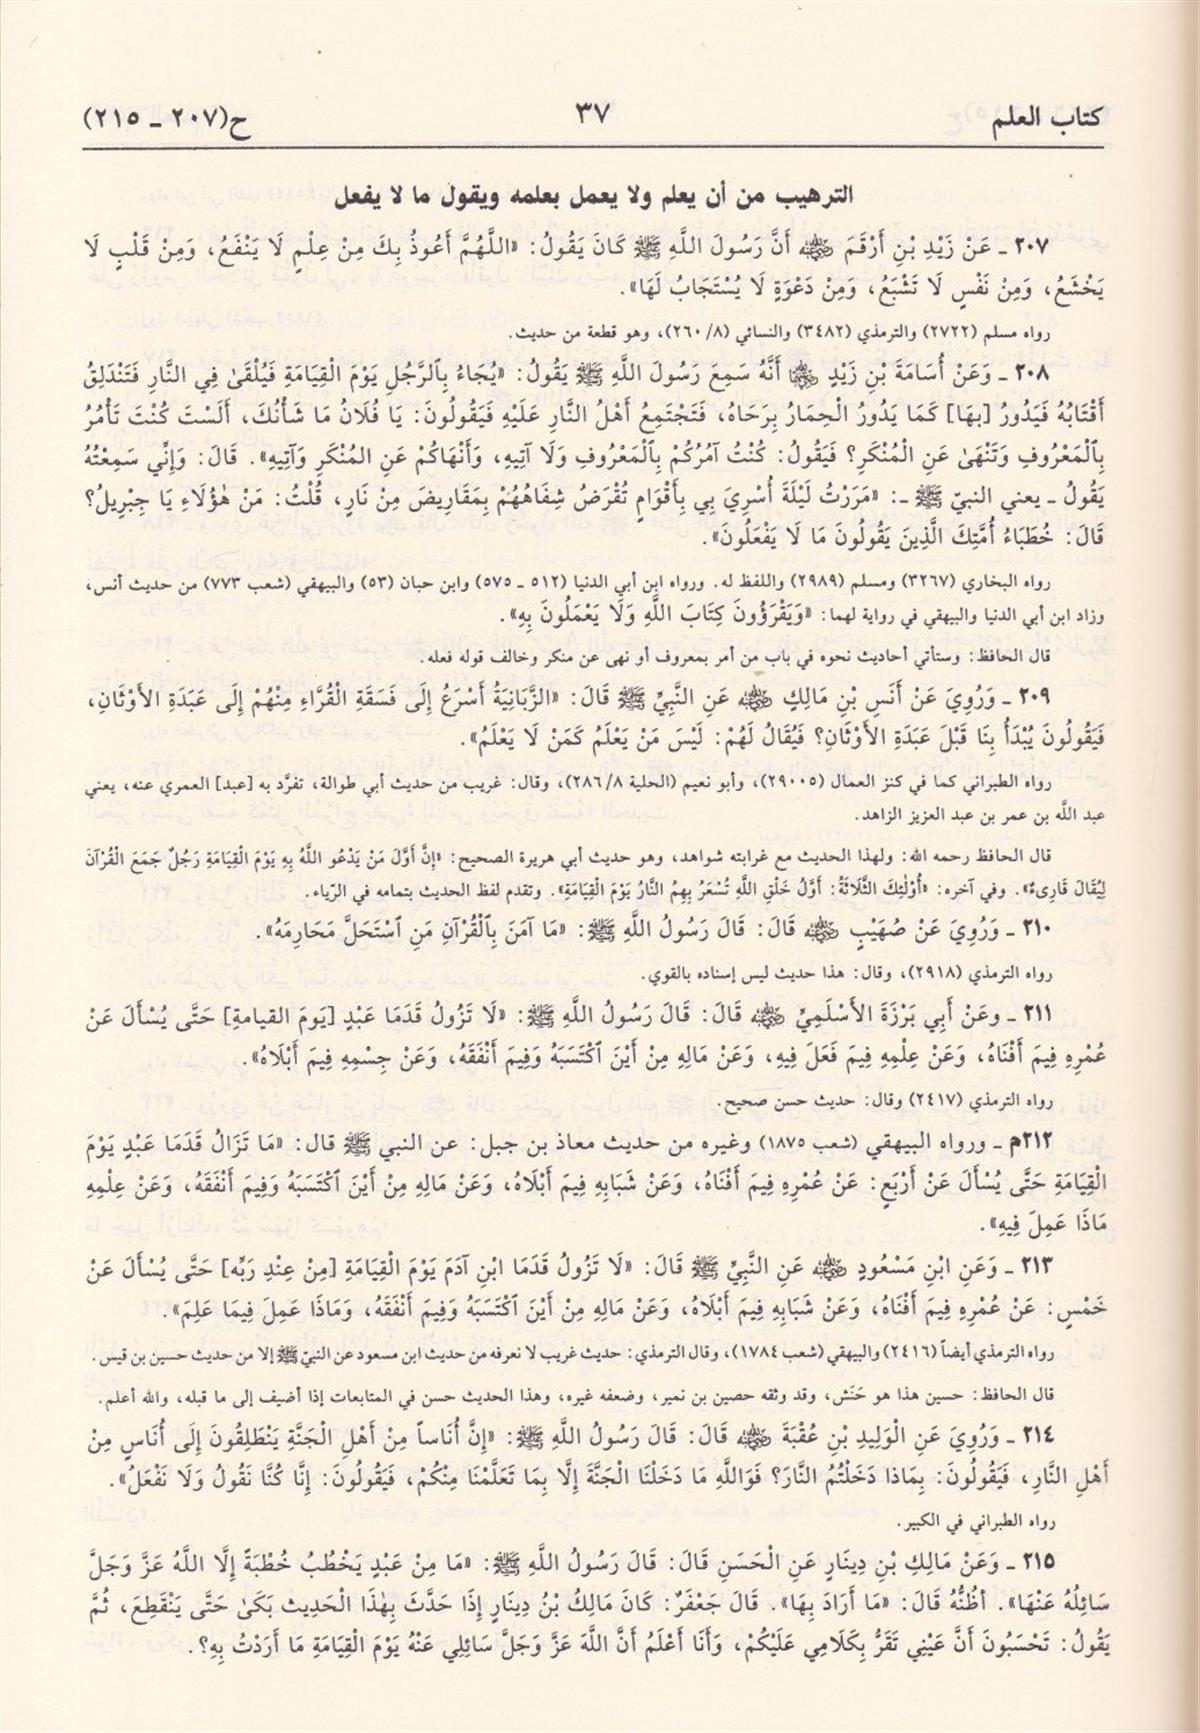 كتاب العلم ٣٧ ح(٢٠٧ ـ ٢١٥)
الترهيب من أن يعلم ولا يعمل بعلمه ويقول ما لا يفعل
٢٠٧ ـ عَنْ زَيْدِ بْنِ أَرْقَمَ ﵁ أَنَّ رَسُولَ اللَّهِ ﷺ كَانَ يَقُولُ: «اللَّهُمَّ أَعُوذُ بِكَ مِنْ عِلْمٍ لَا يَنْفَعُ، وَمِنْ قَلْبٍ لَا
يَخْشَعُ، وَمِنْ نَفْسٍ لَا تَشْبَعُ، وَمِنْ دَعْوَةٍ لَا يُسْتَجَابُ لَهَا».
رواه مسلم (٢٧٢٢) والترمذي (٣٤٨٢) والنسائي (٨/ ٢٦٠)، وهو قطعة من حديث.
٢٠٨ ـ وَعَنْ أُسَامَةَ بْنِ زَيْدٍ ﵁ أَنَّهُ سَمِعَ رَسُولَ اللَّهِ ﷺ يَقُولُ: «يُجَاءُ بِٱلرَّجُلِ يَوْمَ الْقِيَامَةِ فَيُلْقَىٰ فِي النَّارِ فَتَنْدَلِقُ
أَقْتَابُهُ فَيَدُورُ [بها] كَمَا يَدُورُ الْحِمَارُ بِرَحَاهُ، فَتَجْتَمِعُ أَهْلُ النَّارِ عَلَيْهِ فَيَقُولُونَ: يَا فُلَانُ مَا شَأْنُكَ، أَلَسْتَ كُنْتَ تَأْمُرُ
بِٱلْمَعْرُوفِ وَتَنْهَىٰ عَنِ الْمُنْكَرِ؟ فَيَقُولُ: كُنْتُ آمُرُكُمْ بِٱلْمَعْرُوفِ وَلَا آتِيهِ، وَأَنْهَاكُمْ عَنِ المُنْكَرِ وَآتِيهِ». قَالَ: وَإِنِّي سَمِعْتُهُ
يَقُولُ ـ يعني النبيّ ﷺ ـ: «مَرَرْتُ لَيْلَةَ أُسْرِيَ بِي بِأَقْوَامٍ تُقْرَضُ شِفَاهُهُمْ بِمَقَارِيضَ مِنْ نَارٍ، قُلْتُ: مَنْ هٰؤُلَاءِ يَا جِبْرِيلُ؟
قَالَ: خُطَبَاءُ أُمَّتِكَ الَّذِينَ يَقُولُونَ مَا لَا يَفْعَلُونَ».
رواه البخاري (٣٢٦٧) ومسلم (٢٩٨٩) واللفظ له. ورواه ابن أبي الدنيا (٥١٢ ـ ٥٧٥) وابن حبان (٥٣) والبيهقي (شعب ٧٧٣) من حديث أنس،
وزاد ابن أبي الدنيا والبيهقي في رواية لهما: «وَيَقْرَؤُونَ كِتَابَ اللَّهِ وَلَا يَعْمَلُونَ بِهِ».
قال الحافظ: وستأتي أحاديث نحوه في باب من أمر بمعروف أو نهى عن منكر وخالف قوله فعله.
٢٠٩ ـ وَرُوِيَ عَنْ أَنَسِ بْنِ مَالِكٍ ﵁ عَنِ النَّبِيِّ ﷺ قَالَ: «الزَّبَانِيَةُ أَسْرَعُ إِلَى فَسَقَةِ الْقُرَّاءِ مِنْهُمْ إِلَى عَبَدَةِ الأَوْثَانِ،
فَيَقُولُونَ يُبْدَأُ بِنَا قَبْلَ عَبَدَةِ الأَوْثَانِ؟ فَيُقَالُ لَهُمْ: لَيْسَ مَنْ يَعْلَمُ كَمَنْ لَا يَعْلَمُ».
رواه الطبراني كما في كنز العمال (٢٩٠٠٥)، وأبو نعيم (الحلية ٨/ ٢٨٦)، وقال: غريب من حديث أبي طوالة، تفرَّد به [عبد] العمري عنه، يعني
عبد اللَّه بن عمر بن عبد العزيز الزاهد.
قال الحافظ رحمه الله: ولهذا الحديث مع غرابته شواهد، وهو حديث أبي هريرة الصحيح: «إِنَّ أَوَّلَ مَنْ يَدْعُو اللَّهُ بِهِ يَوْمَ الْقِيَامَةِ رَجُلٌ جَمَعَ الْقُرْآنَ
لِيُقَالَ قَارِىءٌ». وفي آخره: «أُوْلَئِكَ الثَّلَاثَةُ: أَوَّلُ خَلْقِ اللَّهِ تُسْعَرُ بِهِمُ النَّارُ يَوْمَ الْقِيَامَةِ». وتقدم لفظ الحديث بتمامه في الرّياء.
٢١٠ ـ وَرُوِيَ عَنْ صُهَيْبٍ ﵁ قَالَ: قَالَ رَسُولُ اللَّهِ ﷺ: «مَا آمَنَ بِالْقُرْآنِ مَنِ ٱسْتَحَلَّ مَحَارِمَهُ».
رواه الترمذي (٢٩١٨)، وقال: هذا حديث ليس إسناده بالقوي.
٢١١ ـ وعَنْ أَبِي بَرْزَةَ الأَسْلَمِيِّ ﵁ قَالَ: قَالَ رَسُولُ اللَّهِ ﷺ: «لَا تَزُولُ قَدَمَا عَبْدٍ [يَومَ القيامةِ] حَتَّى يُسْأَلَ عَنْ
عُمْرِهِ فِيمَ أَفْنَاهُ، وَعَنْ عِلْمِهِ فِيمَ فَعَلَ فِيهِ، وَعَنْ مَالِهِ مِنْ أَيْنَ ٱكْتَسَبَهُ وَفِيمَ أَنْفَقَهُ، وَعَنْ جِسْمِهِ فِيمَ أَبْلَاهُ».
رواه الترمذي (٢٤١٧) وقال: حديث حسن صحيح.
٢١٢م ـ ورواه البيهقي (شعب ١٨٧٥) وغيره من حديث معاذ بن جبل: عن النبي ﷺ قال: «مَا تَزَالُ قَدَمَا عَبْدٍ يَوْمَ
الْقِيَامَةِ حَتَّى يُسْأَلَ عَنْ أَرْبَعٍ: عَنْ عُمْرِهِ فِيمَ أَفْنَاهُ، وَعَنْ شَبَابِهِ فِيمَ أَبْلَاهُ، وَعَنْ مَالِهِ مِنْ أَيْنَ ٱكْتَسَبَهُ وَفِيمَ أَنْفَقَهُ، وَعَنْ عِلْمِهِ
مَاذَا عَمِلَ فِيهِ».
٢١٣ ـ وَعَنِ ابْنِ مَسْعُودٍ ﵁ عَنِ النَّبِيِّ ﷺ قَالَ: «لَا تَزُولُ قَدَمَا ابْنِ آدَمَ يَوْمَ الْقِيَامَةِ [مِنْ عِنْدِ رَبِّه] حَتَّى يُسْأَلَ عَنْ
خَمْسٍ: عَنْ عُمْرِهِ فِيمَ أَفْنَاهُ، وَعَنْ شَبَابِهِ فِيمَ أَبْلَاهُ، وَعَنْ مَالِهِ مِنْ أَيْنَ ٱكْتَسَبَهُ وَفِيمَ أَنْفَقَهُ، وَمَاذَا عَمِلَ فِيمَا عَلِمَ».
رواه الترمذي أيضاً (٢٤١٦) والبيهقي (شعب ١٧٨٤)، وقال الترمذي: حديث غريب لا نعرفه من حديث ابن مسعود عن النبيّ ﷺ إلا من حديث حسين بن قيس.
قال الحافظ: حسين هذا هو حَنَش، وقد وثقه حصين بن نمير، وضعفه غيره، وهذا الحديث حسن في المتابعات إذا أضيف إلى ما قبله، والله أعلم.
٢١٤ ـ وَرُوِيَ عَنِ الْوَلِيدِ بْنِ عُقْبَةَ ﵁ قَالَ: قَالَ رَسُولُ اللَّهِ ﷺ: «إِنَّ أُنَاساً مِنْ أَهْلِ الْجَنَّةِ يَنْطَلِقُونَ إِلَى أُنَاسٍ مِنْ
أَهْلِ النَّارِ، فَيَقُولُونَ: بِمَاذا دَخَلْتُمُ النَّارَ؟ فَوَاللَّهِ مَا دَخَلْنَا الْجَنَّةَ إِلَّا بِمَا تَعَلَّمْنَا مِنْكُمْ، فَيَقُولُونَ: إِنَّا كُنَّا نَقُولُ وَلَا نَفْعَلُ».
رواه الطبراني في الكبير.
٢١٥ ـ وَعَنْ مَالِكِ بْنِ دِينَارٍ عَنِ الْحَسَنِ قَالَ: قَالَ رَسُولُ اللَّهِ ﷺ: «مَا مِنْ عَبْدٍ يَخْطُبُ خُطْبَةً إِلَّا اللَّهُ عَزَّ وَجَلَّ
سَائِلُهُ عَنْهَا». أظُنُّهُ قَالَ: «مَا أَرَادَ بِهَا». قَالَ جَعْفَرٌ: كَانَ مَالِكُ بْنُ دِينَارٍ إِذَا حَدَّثَ بِهٰذَا الْحَدِيث بَكَىٰ حَتَّى يَنْقَطِعَ، ثُمَّ
يَقُولُ: تَحْسَبُونَ أَنَّ عَيْنِي تَقَرُّ بِكَلَامِي عَلَيْكُمْ، وَأَنَا أَعْلَمُ أَنَّ اللَّهَ عَزَّ وَجَلَّ سَائِلِي عَنْهُ يَوْمَ الْقِيَامَةِ مَا أَرَدْتُ بِهِ؟.